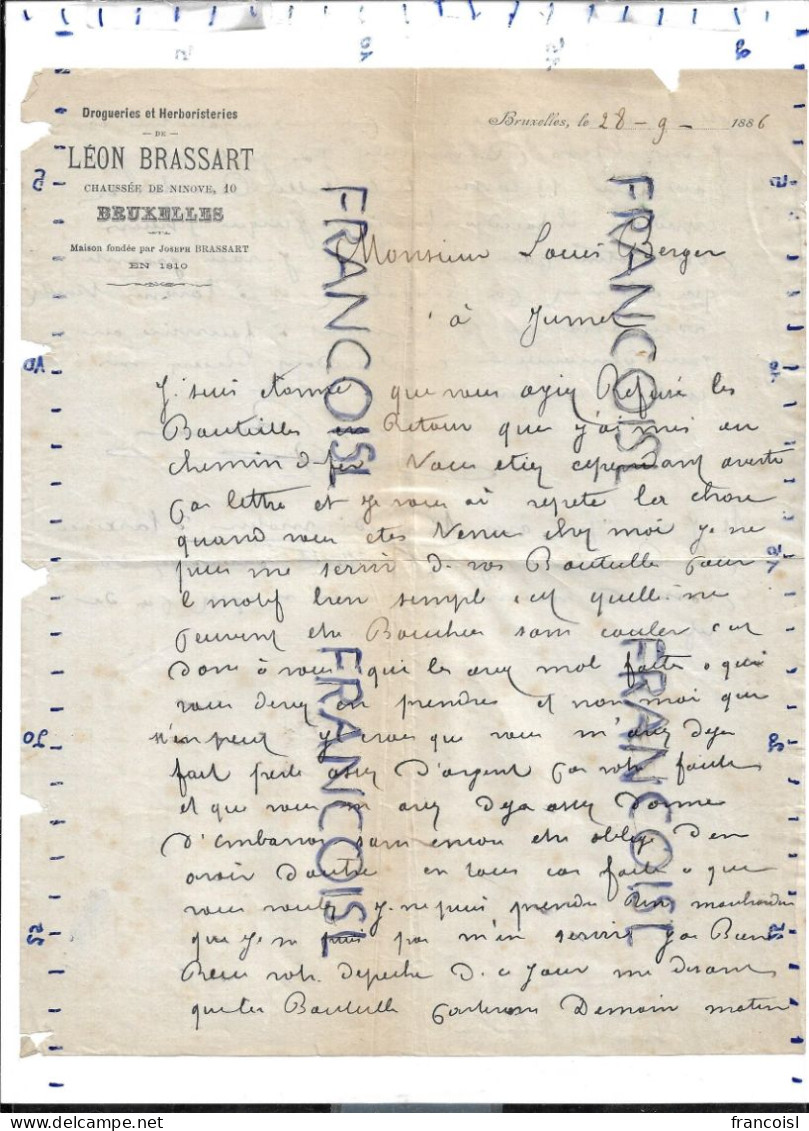 Drogueries et Herboristeries
— DE —
LÉON BRASSART
CHAUSSÉE DE NINOVE, 10
BRUXELLES
Maison fondée par Joseph BRASSART
EN 1810
Bruxelles, le 28 - 9 - 1886
Monsieur Louis Berger
à Jumet
Je suis etonné que vous ayiez Refusé les
Bouteilles en Retour que j'ai mis au
chemin d-fer Vous etiez cependant averti
par lettre et je vous ai repeté les chose
quand vous etes Venu chez moi je ne
puis me servir de vos Bouteille pour
l motif bien simpl c'est quelle ne
peuvent etre Bouchées sans couler c'est
donc à vous qui les avez mal faites a qui
vous devez en prendres et non moi que
n'en peux je crois que vous m'avez deja
fait perdre assez d'argent par votre faute
et que vous m'avez deja assez donné
d'embarras sans encore etre obligé d'en
avoir d'autre
vous voulez je ne puis prendre Des marchandises
que je ne puis pas m'en servire
Recu votr depeche d ce jour me disant
que les Bouteille partirons Demain matin
FRANCOISL
FRANCOISL
FRANCOISL
FRANCOISL
francoisl